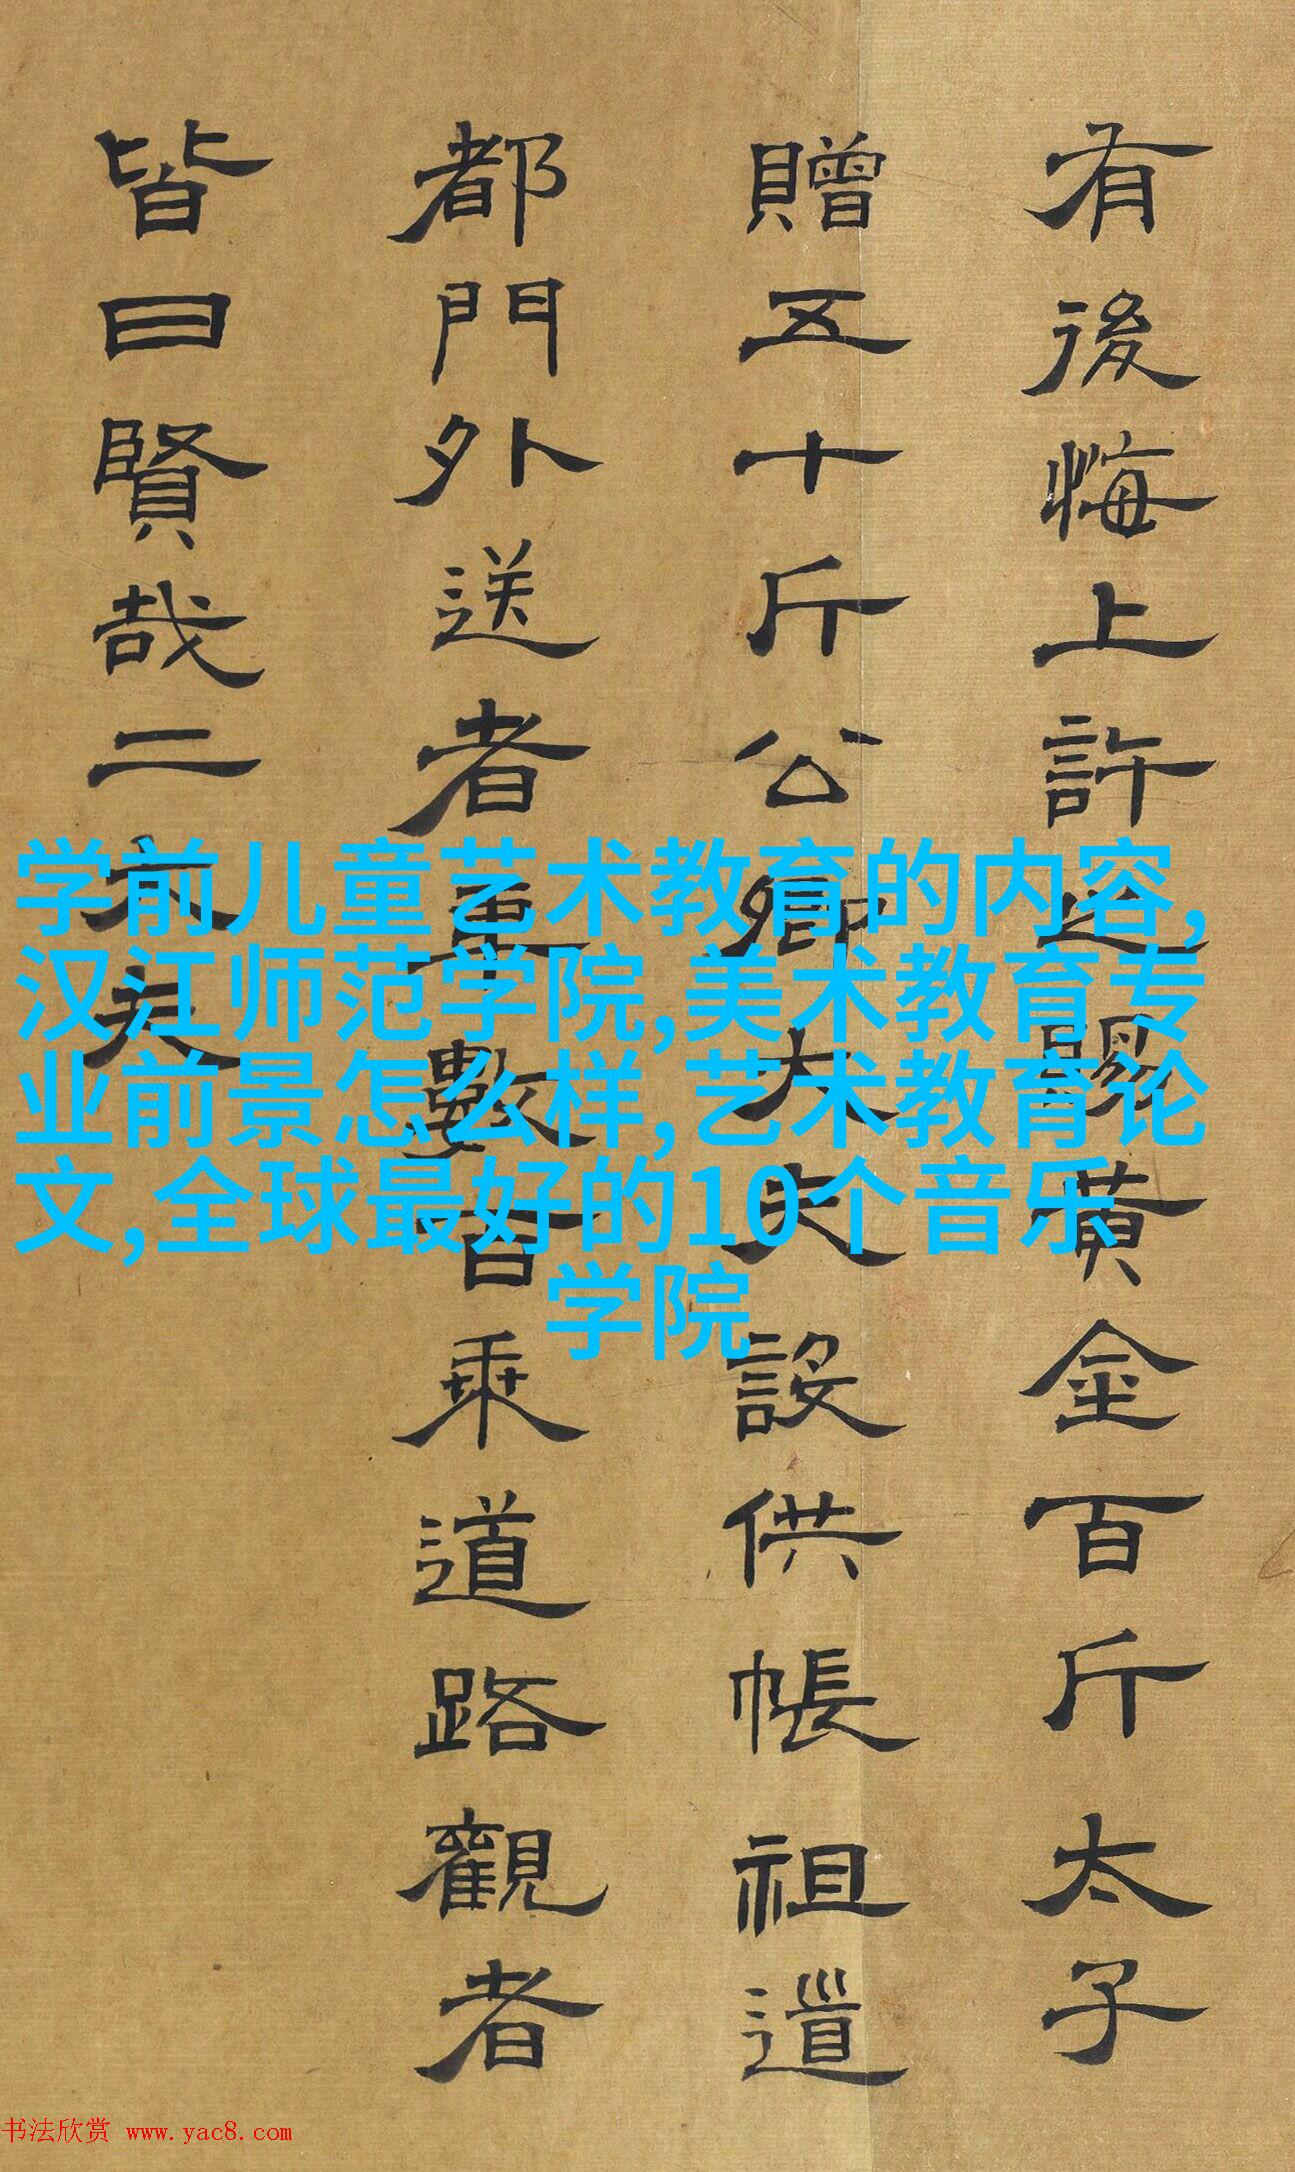 有後悔上許之賜黃金百斤太子
贈五十斤公卿大夫設供帳祖道
都門外送者車數百乘道路觀者
皆曰賢哉二大夫
学前儿童艺术教育的内容,
汉江师范学院,美术教育专
业前景怎么样,艺术教育论
文,全球最好的10个音乐
学院
书法欣赏 www.yac8.com